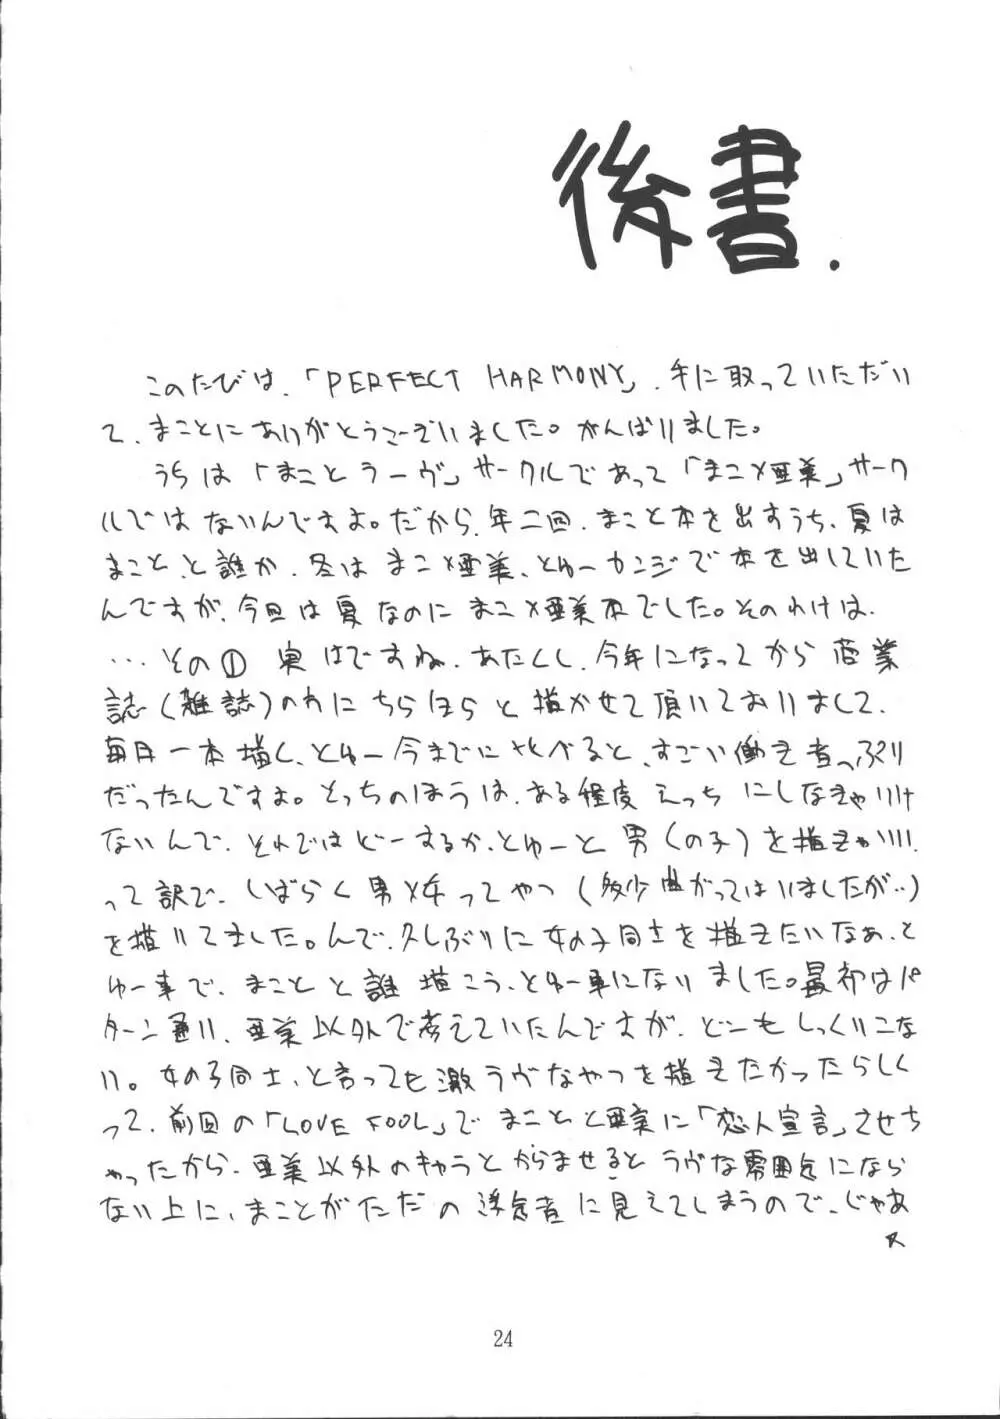 後書.
このたびは、「PERFECT HARMONY」、手に取っていただい
て、まことにありがとうございました。がんばりました。
うちは「まことラーヴ」サークルであって「まこ×亜美」サーク
ルではないんですよ。だから、年二回、まこと本を出すうち、夏は
まこと、と誰か、冬はまこ×亜美、とゆーカンジで本を出していた
んですが、今回は夏なのにまこ×亜美本でした。そのわけは、
…その① 実はですね、あたくし、今年になってから商業
誌(雑誌)のわにちらほらと描かせて頂いておりまして、
毎月一本描く、とゆー今までに比べると、すごい働き者っぷり
だったんですよ。とっちのほうは、ある程度えっちにしなきゃいけ
ないんで、それではどーするか、とゆーと男(の子)を描きゃいい。
って訳で、しばらく男×女ってやつ(多少曲がってはいましたが‥)
を描いてました。んで、久しぶりに女の子同士を描きたいなぁ、と
ゆー事で、まことと誰描こう、とゆー事になりました。最初はパ
ターン通り、亜美以外で考えていたんですが、どーもしっくりこな
い。女の子同士、と言っても激ラヴなやつを描きたかったらしく
って、前回の「LOVE FOOL」でまことと亜美に「恋人宣言」させち
ゃったから、亜美以外のキャラとからませるとラヴな雰囲気になら
ない上に、まことがただの浮気者に見えてしまうので、じゃあ
24